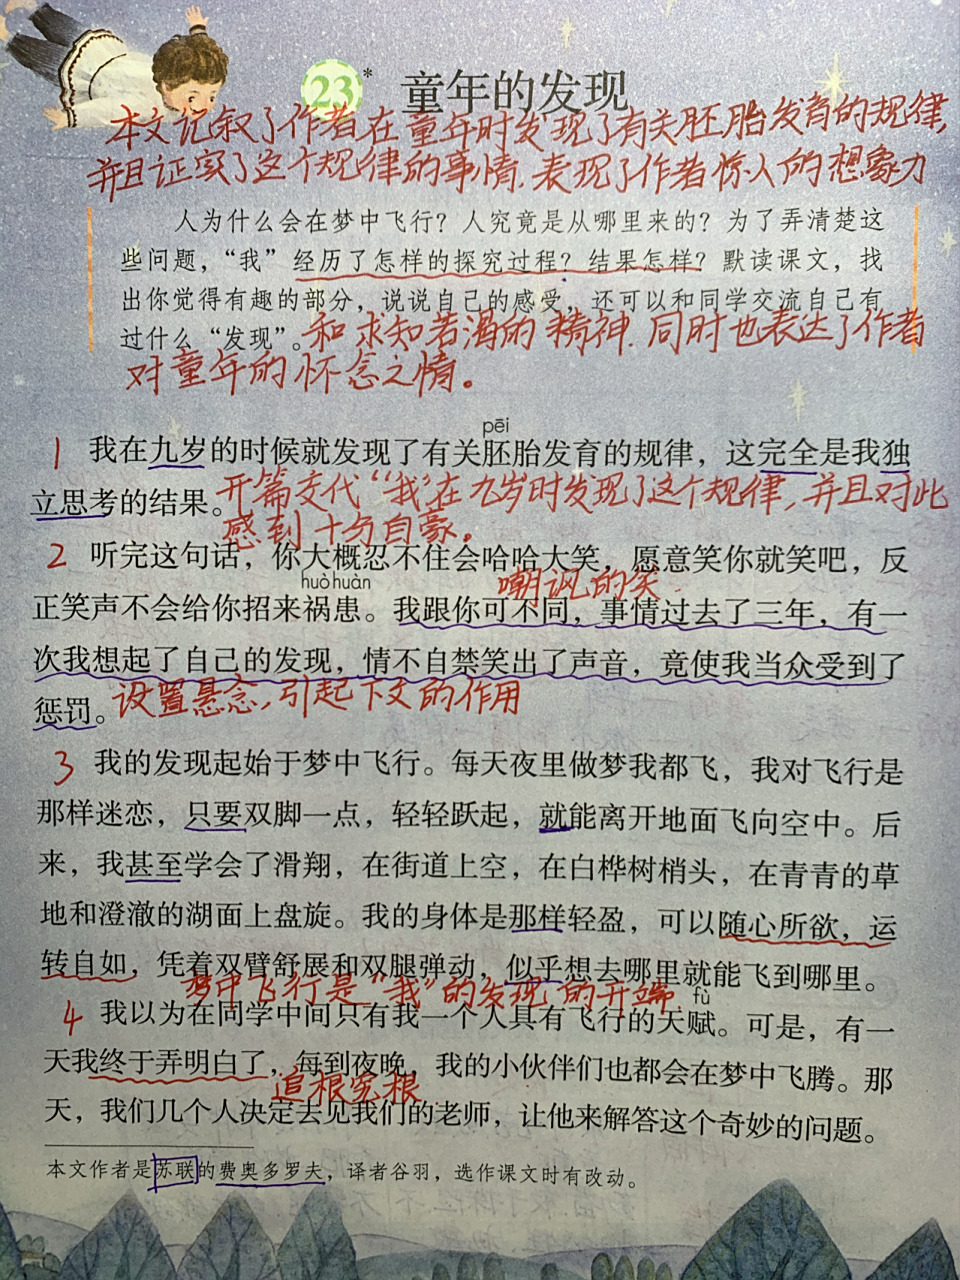 23* 童年的发现
本文记叙了作者在童年时发现了有关胚胎发育的规律,
并且证实了这个规律的事情.表现了作者惊人的想象力
人为什么会在梦中飞行？人究竟是从哪里来的？为了弄清楚这
些问题，“我”经历了怎样的探究过程？结果怎样？默读课文，找
出你觉得有趣的部分，说说自己的感受，还可以和同学交流自己有
过什么“发现”。
和求知若渴的精神.同时也表达了作者
对童年的怀念之情。
pēi
1 我在九岁的时候就发现了有关胚胎发育的规律，这完全是我独
立思考的结果。
开篇交代“我”在九岁时发现了这个规律,并且对此
感到十分自豪。
2 听完这句话，你大概忍不住会哈哈大笑，愿意笑你就笑吧，反
huò huàn
嘲讽的笑.
正笑声不会给你招来祸患。我跟你可不同，事情过去了三年，有一
次我想起了自己的发现，情不自禁笑出了声音，竟使我当众受到了
惩罚。
设置悬念,引起下文的作用
3 我的发现起始于梦中飞行。每天夜里做梦我都飞，我对飞行是
那样迷恋，只要双脚一点，轻轻跃起，就能离开地面飞向空中。后
来，我甚至学会了滑翔，在街道上空，在白桦树梢头，在青青的草
地和澄澈的湖面上盘旋。我的身体是那样轻盈，可以随心所欲，运
转自如，凭着双臂舒展和双腿弹动，似乎想去哪里就能飞到哪里。
梦中飞行是“我”的发现的开端.
fù
4 我以为在同学中间只有我一个人具有飞行的天赋。可是，有一
天我终于弄明白了，每到夜晚，我的小伙伴们也都会在梦中飞腾。那
追根究根
天，我们几个人决定去见我们的老师，让他来解答这个奇妙的问题。
本文作者是苏联的费奥多罗夫，译者谷羽，选作课文时有改动。